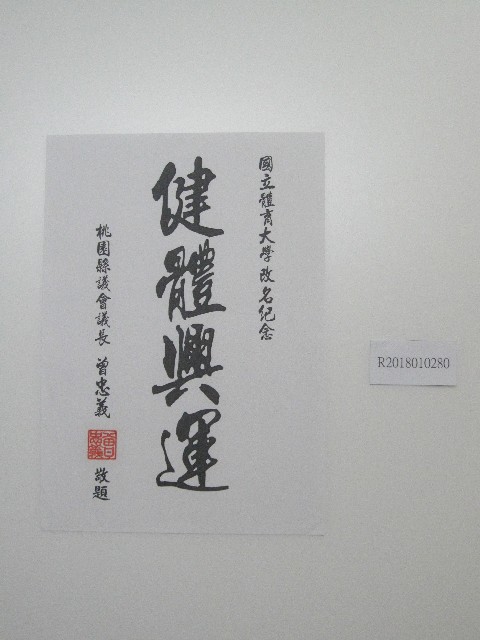 國立體育大學改名紀念
健體興運
桃園縣議會議長 曾忠義 敬題
曾忠義
R2018010280